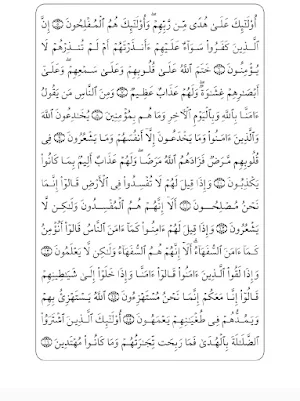 أُو۟لَـٰٓئِكَ عَلَىٰ هُدًى مِّن رَّبِّهِمْ ۖ وَأُو۟لَـٰٓئِكَ هُمُ ٱلْمُفْلِحُونَ ۝ إِنَّ
ٱلَّذِينَ كَفَرُوا۟ سَوَآءٌ عَلَيْهِمْ ءَأَنذَرْتَهُمْ أَمْ لَمْ تُنذِرْهُمْ لَا
يُؤْمِنُونَ ۝ خَتَمَ ٱللَّهُ عَلَىٰ قُلُوبِهِمْ وَعَلَىٰ سَمْعِهِمْ ۖ وَعَلَىٰٓ
أَبْصَـٰرِهِمْ غِشَـٰوَةٌ ۖ وَلَهُمْ عَذَابٌ عَظِيمٌ ۝ وَمِنَ ٱلنَّاسِ مَن يَقُولُ
ءَامَنَّا بِٱللَّهِ وَبِٱلْيَوْمِ ٱلْـَٔاخِرِ وَمَا هُم بِمُؤْمِنِينَ ۝ يُخَـٰدِعُونَ ٱللَّهَ
وَٱلَّذِينَ ءَامَنُوا۟ وَمَا يَخْدَعُونَ إِلَّآ أَنفُسَهُمْ وَمَا يَشْعُرُونَ ۝ فِى
قُلُوبِهِم مَّرَضٌ فَزَادَهُمُ ٱللَّهُ مَرَضًا ۖ وَلَهُمْ عَذَابٌ أَلِيمٌۢ بِمَا كَانُوا۟
يَكْذِبُونَ ۝ وَإِذَا قِيلَ لَهُمْ لَا تُفْسِدُوا۟ فِى ٱلْأَرْضِ قَالُوٓا۟ إِنَّمَا
نَحْنُ مُصْلِحُونَ ۝ أَلَآ إِنَّهُمْ هُمُ ٱلْمُفْسِدُونَ وَلَـٰكِن لَّا
يَشْعُرُونَ ۝ وَإِذَا قِيلَ لَهُمْ ءَامِنُوا۟ كَمَآ ءَامَنَ ٱلنَّاسُ قَالُوٓا۟ أَنُؤْمِنُ
كَمَآ ءَامَنَ ٱلسُّفَهَآءُ ۗ أَلَآ إِنَّهُمْ هُمُ ٱلسُّفَهَآءُ وَلَـٰكِن لَّا يَعْلَمُونَ ۝
وَإِذَا لَقُوا۟ ٱلَّذِينَ ءَامَنُوا۟ قَالُوٓا۟ ءَامَنَّا وَإِذَا خَلَوْا۟ إِلَىٰ شَيَـٰطِينِهِمْ
قَالُوٓا۟ إِنَّا مَعَكُمْ إِنَّمَا نَحْنُ مُسْتَهْزِءُونَ ۝ ٱللَّهُ يَسْتَهْزِئُ بِهِمْ
وَيَمُدُّهُمْ فِى طُغْيَـٰنِهِمْ يَعْمَهُونَ ۝ أُو۟لَـٰٓئِكَ ٱلَّذِينَ ٱشْتَرَوُا۟
ٱلضَّلَـٰلَةَ بِٱلْهُدَىٰ فَمَا رَبِحَت تِّجَـٰرَتُهُمْ وَمَا كَانُوا۟ مُهْتَدِينَ ۝